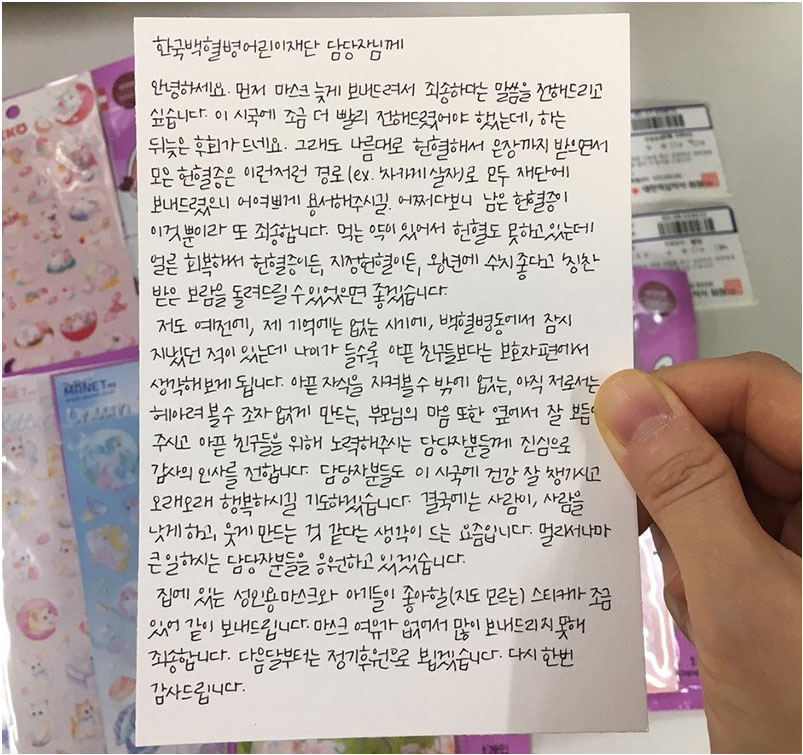 한국백혈병어린이재단 담당자님께
안녕하세요. 먼저 마스크 늦게 보내드려서 죄송하다는 말씀을 전해드리고
싶습니다. 이 시국에 조금 더 빨리 전해드렸어야 했는데, 하는
뒤늦은 후회가 드네요. 그래도 나름대로 헌혈해서 은장까지 받으면서
모은 헌혈증은 이런저런 경로(ex. 자가게 살재)로 모두 재단에
보내드렸으니 어여쁘게 용서해주시길. 어쩌다보니 남은 헌혈증이
이것뿐이라 또 죄송합니다. 먹는 약이 있어서 헌혈도 못하고 있는데
얼른 회복해서 헌혈증이든, 지정헌혈이든, 왕년에 수치 좋다고 칭찬
받은 보람을 돌려드릴 수 있었으면 좋겠습니다.
저도 예전에, 제 기억에는 없는 시기에, 백혈병동에서 잠시
지냈던 적이 있는데 나이가 들수록 아픈 친구들보다는 보호자편에서
생각해보게 됩니다. 아픈 자식을 지켜볼 수 밖에 없는, 아직 저로서는
헤아려 볼 수 조차 없게 만드는, 부모님의 마음 또한 옆에서 잘 보듬어
주시고 아픈 친구들을 위해 노력해주시는 담당자분들께 진심으로
감사의 인사를 전합니다. 담당자분들도 이 시국에 건강 잘 챙기시고
오래오래 행복하시길 기도하겠습니다. 결국에는 사람이, 사람을
낫게 하고, 웃게 만드는 것 같다는 생각이 드는 요즘입니다. 멀리서나마
큰 일하시는 담당자분들을 응원하고 있겠습니다.
집에 있는 성인용 마스크와 아기들이 좋아할(지도 모르는) 스티커가 조금
있어 같이 보내드립니다. 마스크 여유가 없어서 많이 보내드리지 못해
죄송합니다. 다음달부터는 정기후원으로 뵙겠습니다. 다시 한번
감사드립니다.
MANET